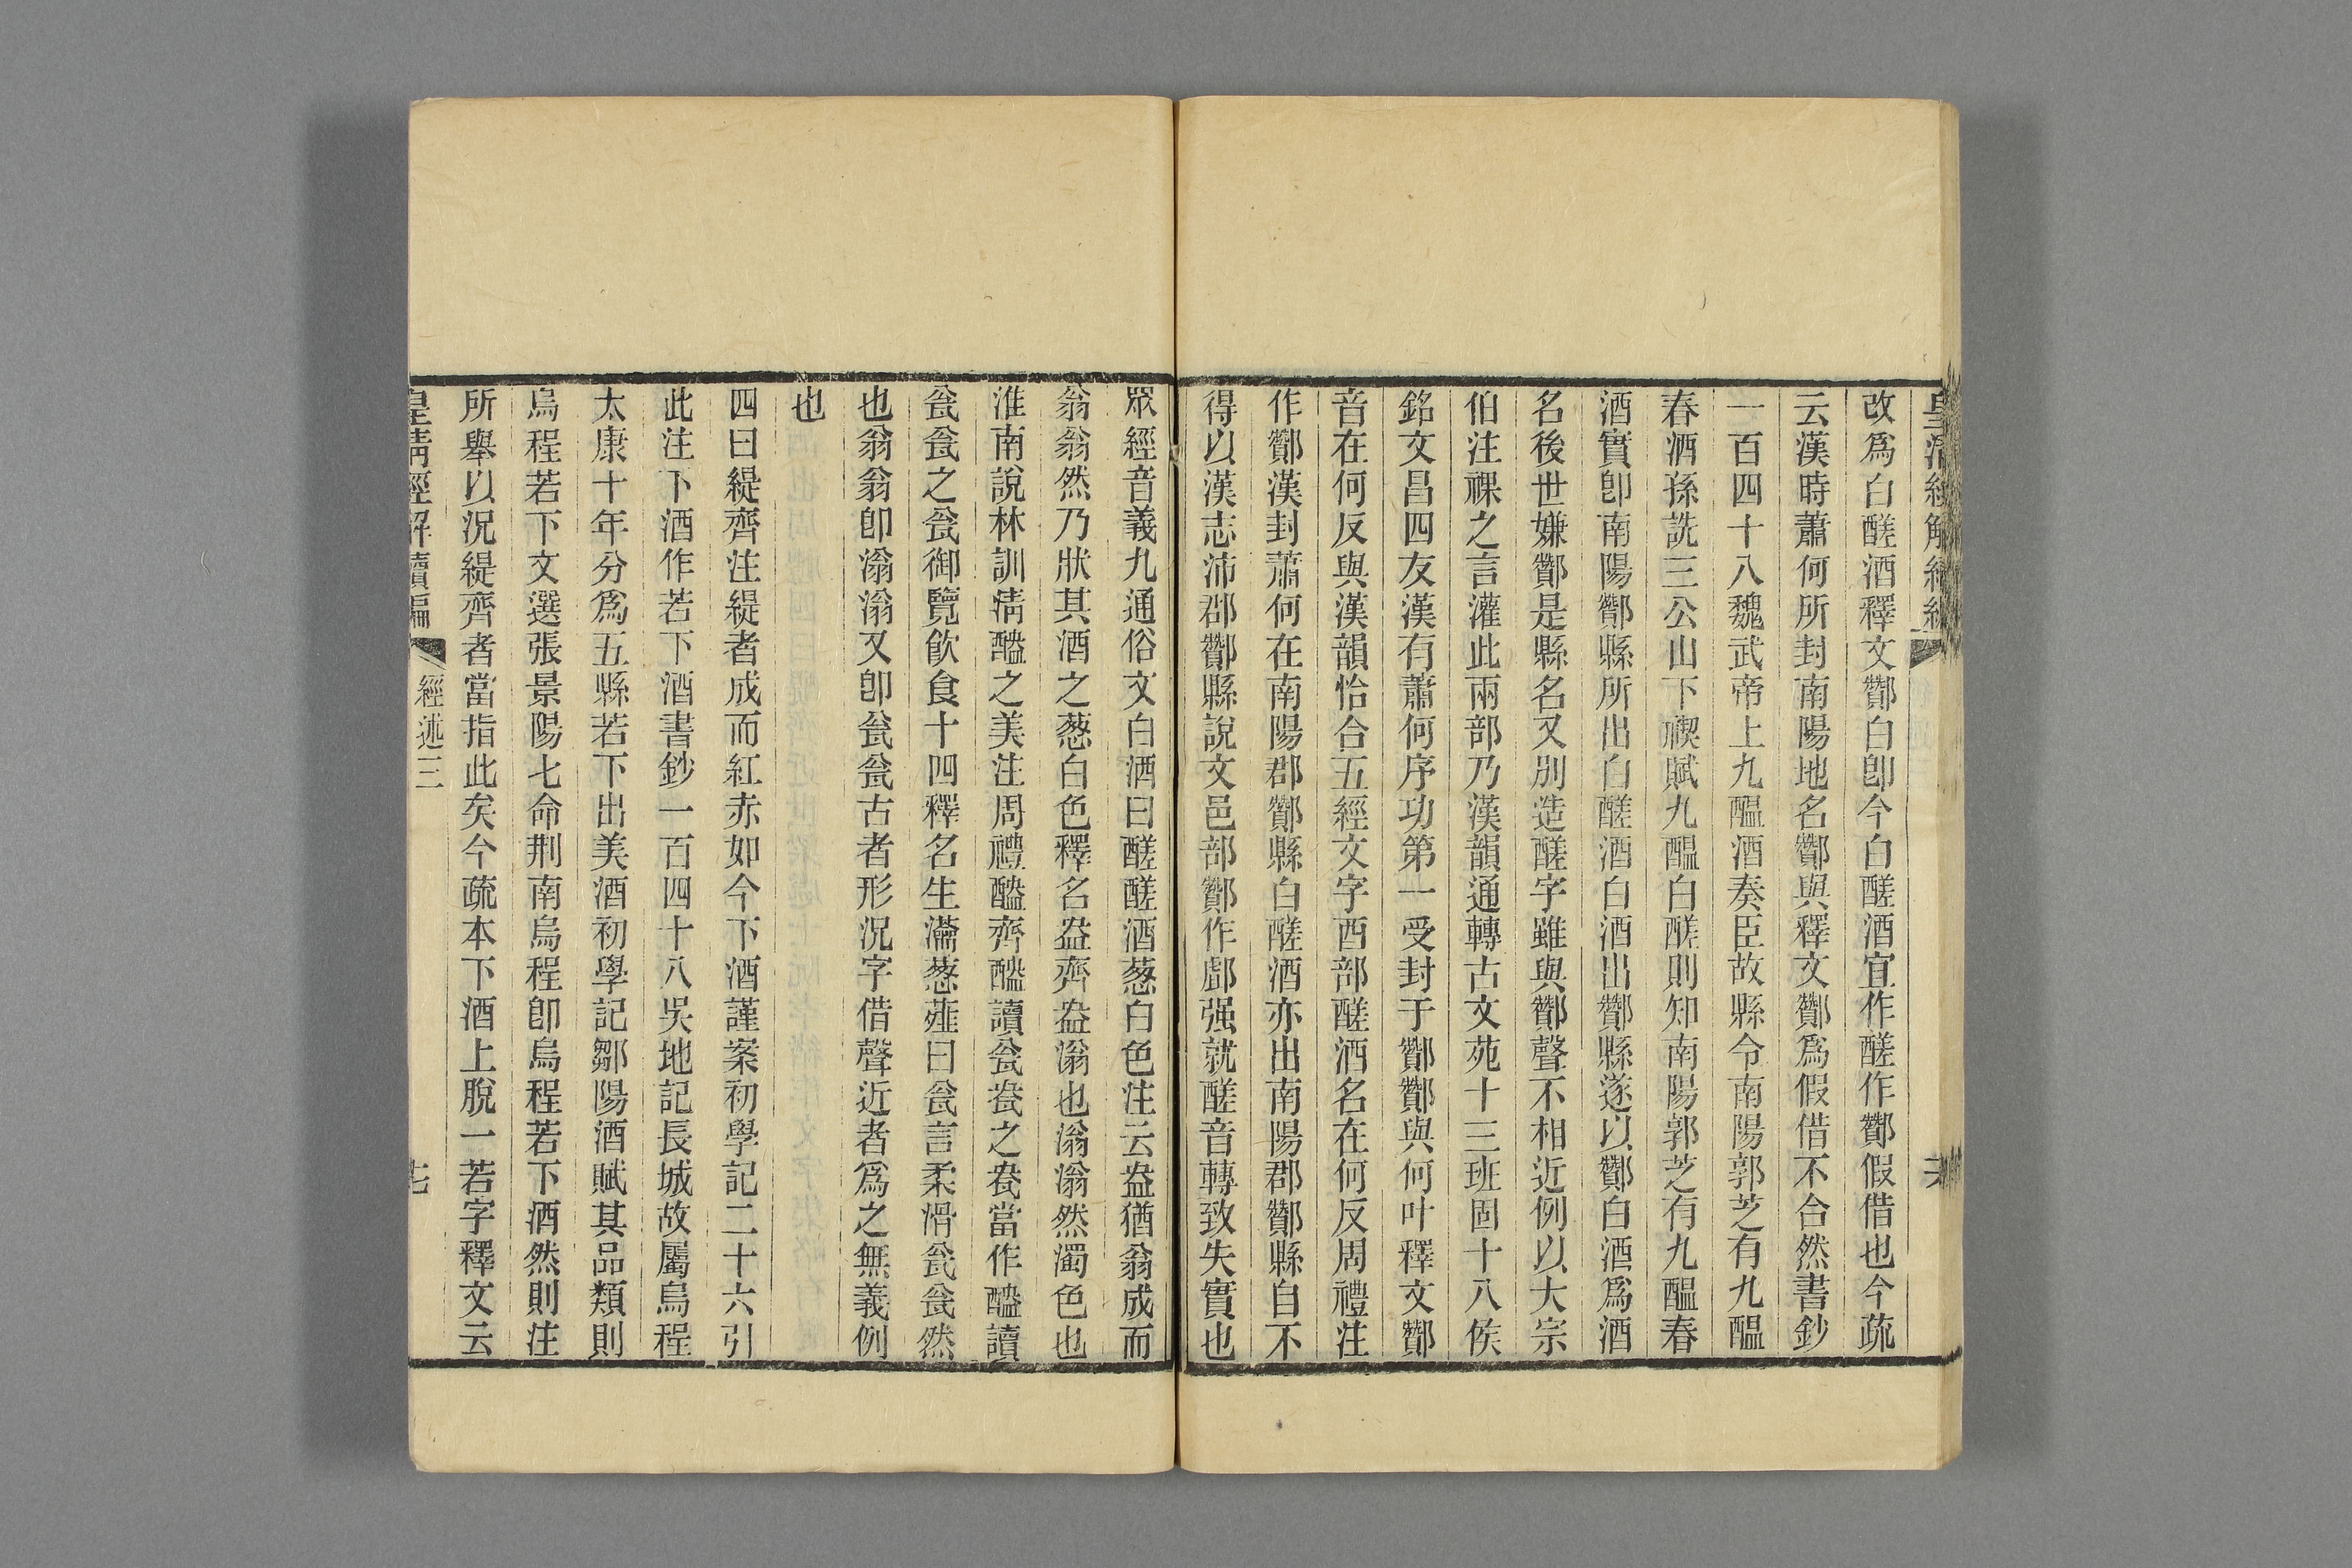 改爲白醝酒釋文酇白卽今白醝酒宜作醝作酇假借也今疏
云漢時蕭何所封南陽地名酇與釋文酇爲假借不合然書鈔
一百四十八魏武帝上九醞酒奏臣故縣令南陽郭芝有九醞
春酒孫詵三公山下禊賦九醞白醝則知南陽郭芝有九醞春
酒實卽南陽酇縣所出白醝酒白酒出酇縣遂以酇白酒爲酒
名後世嫌酇是縣名又別造醝字雖與酇聲不相近例以大宗
伯注祼之言灌此兩部乃漢韻通轉古文苑十三班固十八侯
銘文昌四友漢有蕭何序功第一受封于酇酇與何叶釋文酇
音在何反與漢韻恰合五經文字酉部醝酒名在何反周禮注
作酇漢封蕭何在南陽郡酇縣白醝酒亦出南陽郡酇縣自不
得以漢志沛郡酇縣說文邑部酇作䣜强就醝音轉致失實也
眾經音義九通俗文白酒曰醝醝酒葱白色注云盎猶翁成而
翁翁然乃狀其酒之葱白色釋名盎齊盎滃也滃滃然濁色也
淮南說林訓淸醠之美注周禮醠齊醠讀瓮瓫之瓫當作醠讀
瓮瓮之瓮御覽飮食十四釋名生瀹葱薤曰瓮言柔滑瓮瓮然
也翁翁卽滃滃又卽瓮瓮古者形況字借聲近者爲之無義例
也
四曰緹齊注緹者成而紅赤如今下酒謹案初學記二十六引
此注下酒作若下酒書鈔一百四十八吳地記長城故屬烏程
太康十年分爲五縣若下出美酒初學記鄒陽酒賦其品類則
烏程若下文選張景陽七命荆南烏程卽烏程若下酒然則注
所舉以況緹齊者當指此矣今疏本下酒上脫一若字釋文云
皇淸經解續編 經述三 十七